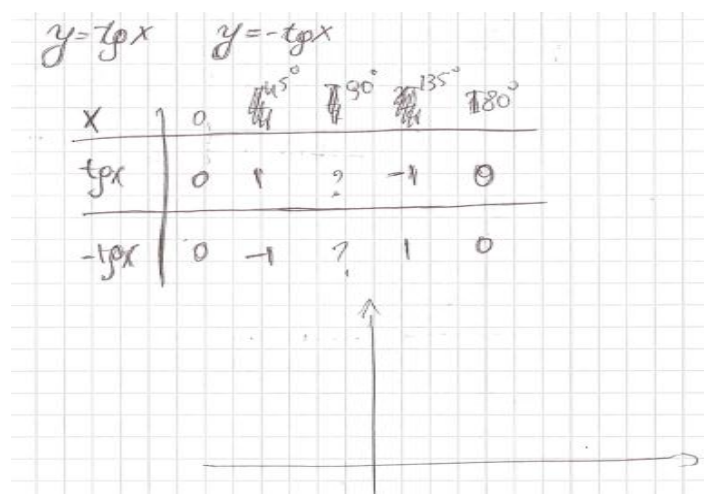 y=tgx y=-tgx
x 0 45° 90° 135° 180°
tgx 0 1 ? -1 0
-tgx 0 -1 ? 1 0